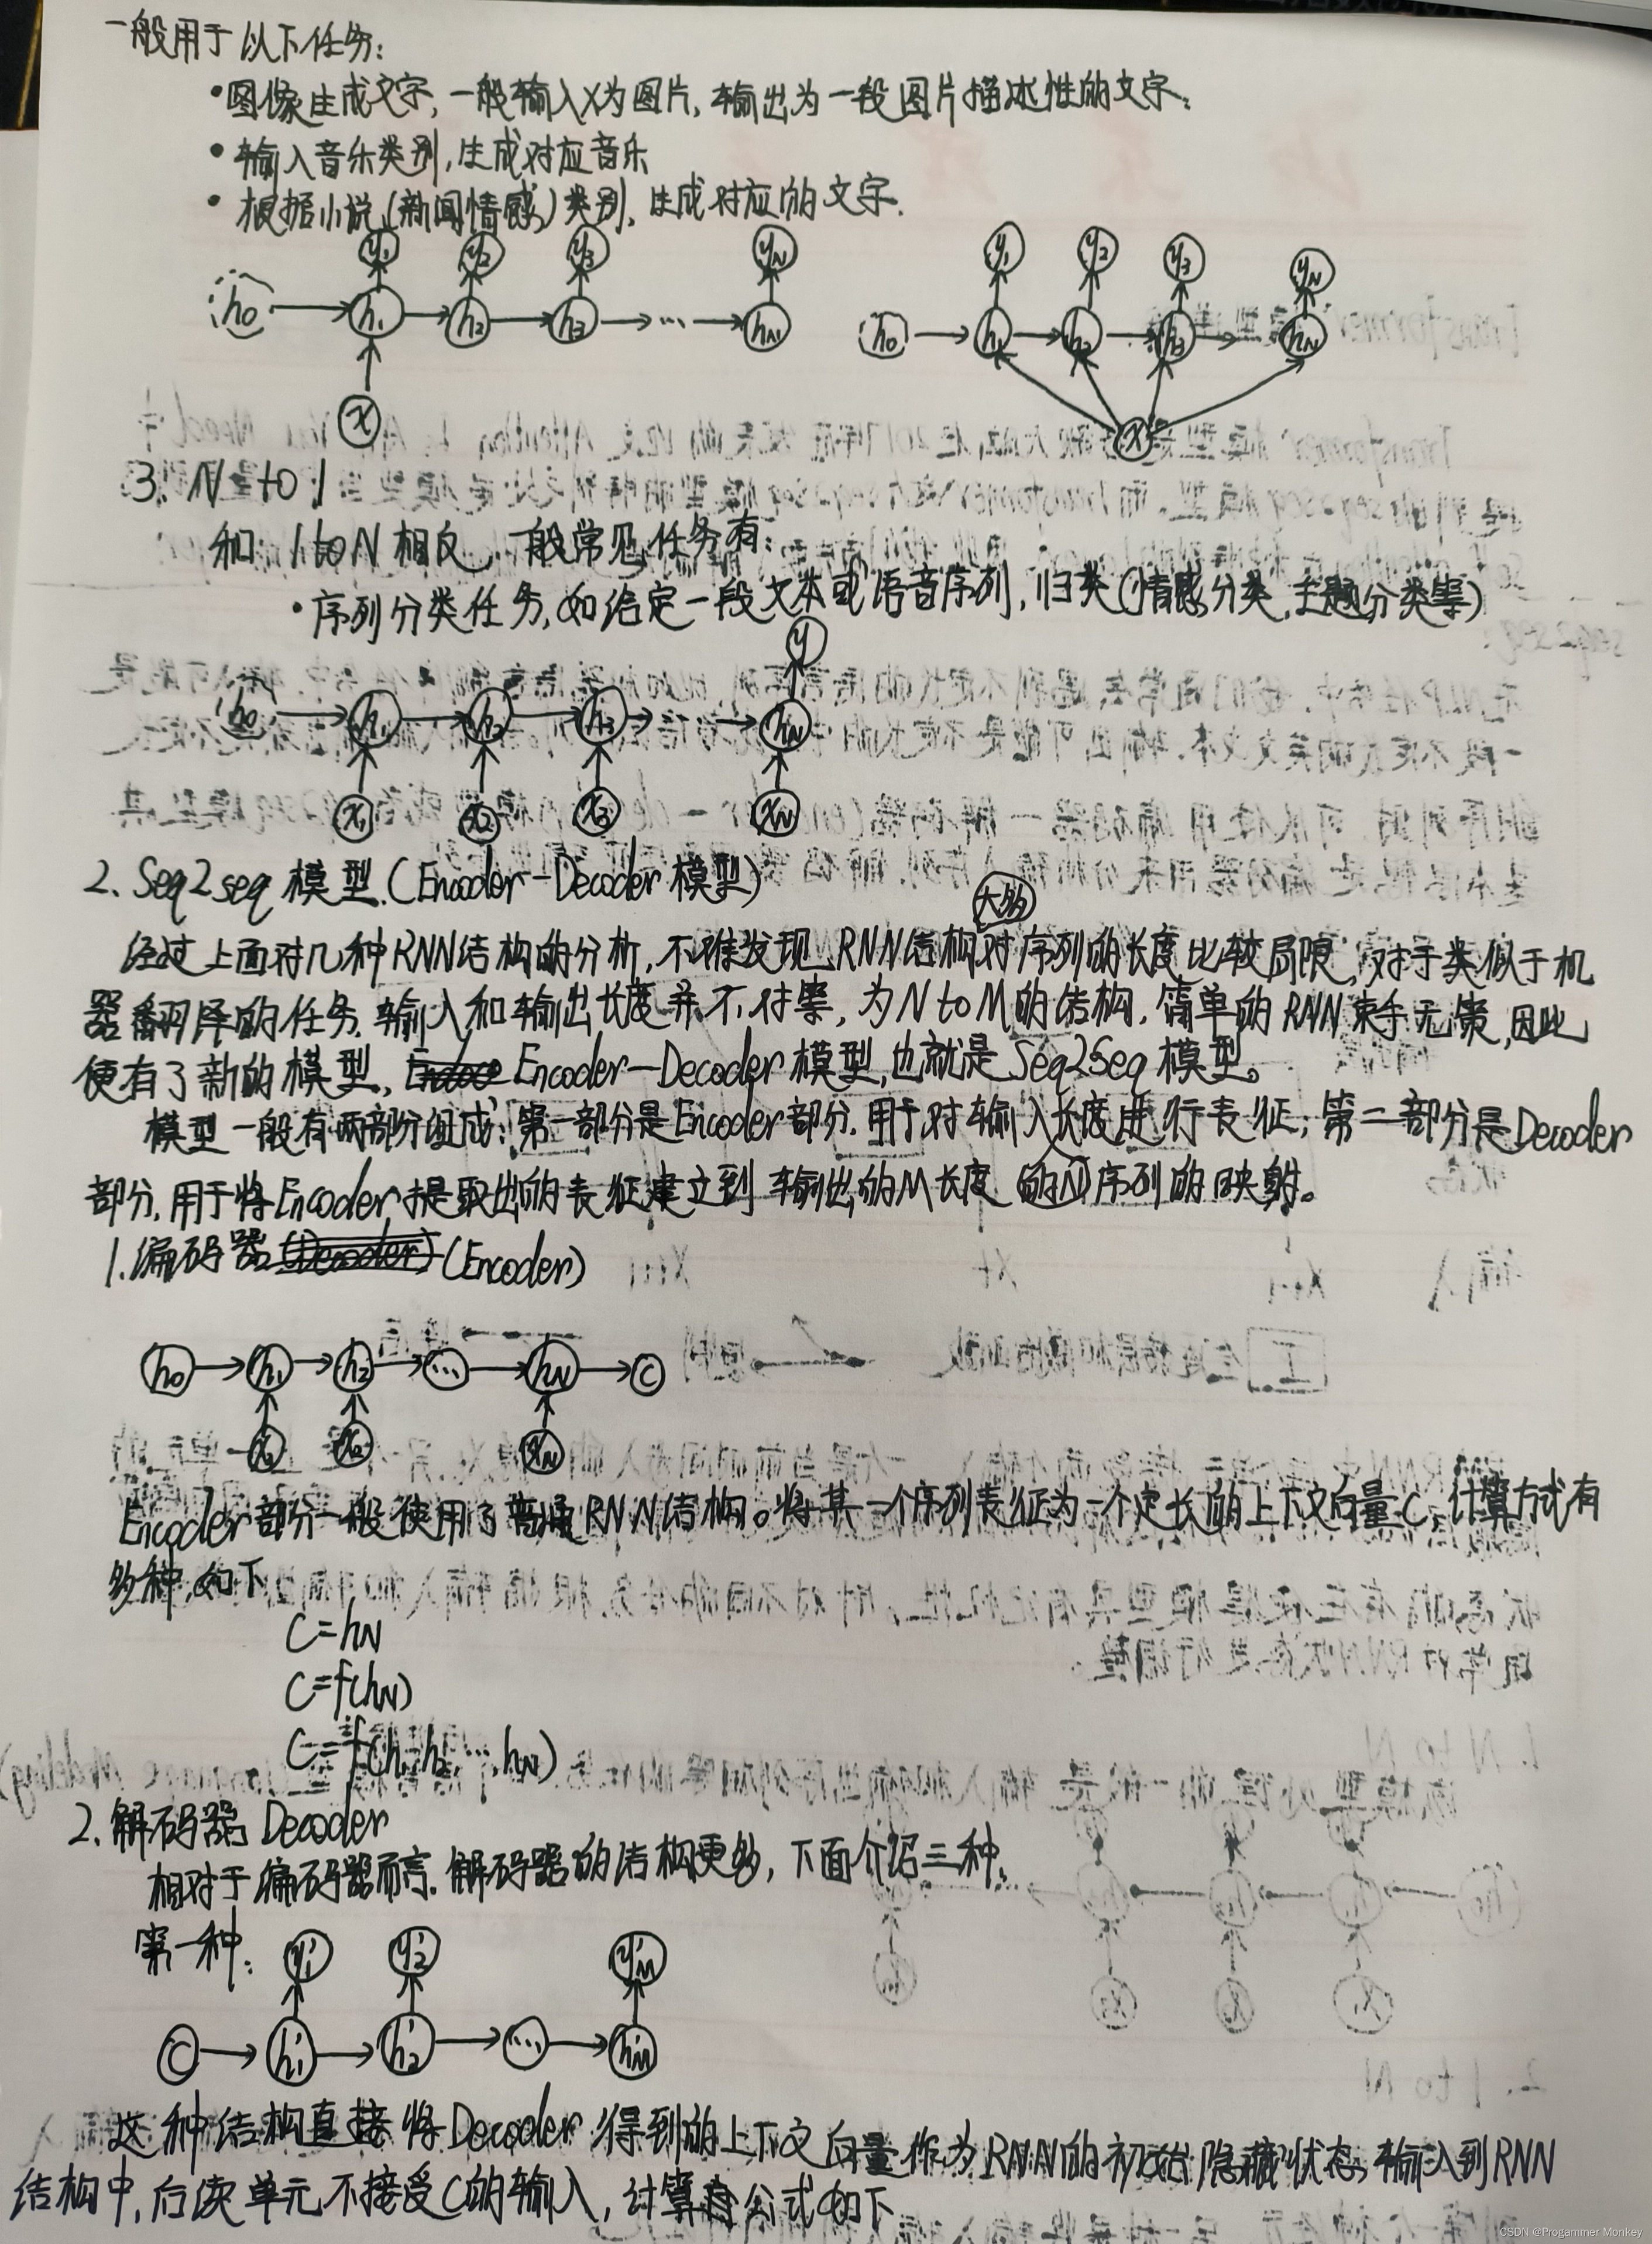 一般用于以下任务:
•图像生成文字,一般输入X为图片,输出为一段图片描述性的文字;
•输入音乐类别,生成对应音乐
•根据小说(新闻情感)类别,生成对应的文字.
y1 y2 y3 yN y1 y2 y3 yN
h0 h1 h2 h3 ... hN h0 h1 h2 h3 hN
x x
3. N to 1
和 1 to N 相反,一般常见任务有:
•序列分类任务,如给定一段文本或语音序列,归类(情感分类,主题分类等)
y
h0 h1 h2 h3 hN
x1 x2 x3 xN
2. Seq2seq 模型.(Encoder-Decoder 模型)
大多
经过上面对几种RNN结构的分析,不难发现RNN结构对序列的长度比较局限,对于类似于机
器翻译的任务,输入和输出长度并不对等,为N to M的结构,简单的RNN束手无策,因此
便有了新的模型, Encoder-Decoder模型,也就是Seq2Seq模型。
模型一般有两部分组成:第一部分是Encoder部分.用于对输入长度进行表征;第二部分是Decoder
部分,用于将Encoder提取出的表征建立到输出的M长度的序列的映射。
1.编码器 (Encoder)
h0 h1 h2 ... hN C
x1 x2 xN
Encoder部分一般使用了普通RNN结构。将其一个序列表征为一个定长的上下文向量C,计算方式有
多种,如下
C=hN
C=f(hN)
C=f(h1,h2,...,hN)
2.解码器 Decoder
相对于编码器而言.解码器的结构更多,下面介绍三种.
第一种:
y'1 y'2 y'M
C h'1 h'2 ... h'M
这种结构直接将Decoder得到的上下文向量作为RNN的初始隐藏状态输入到RNN
结构中,后续单元不接受C的输入,计算公式如下
CSDN @Progammer Monkey